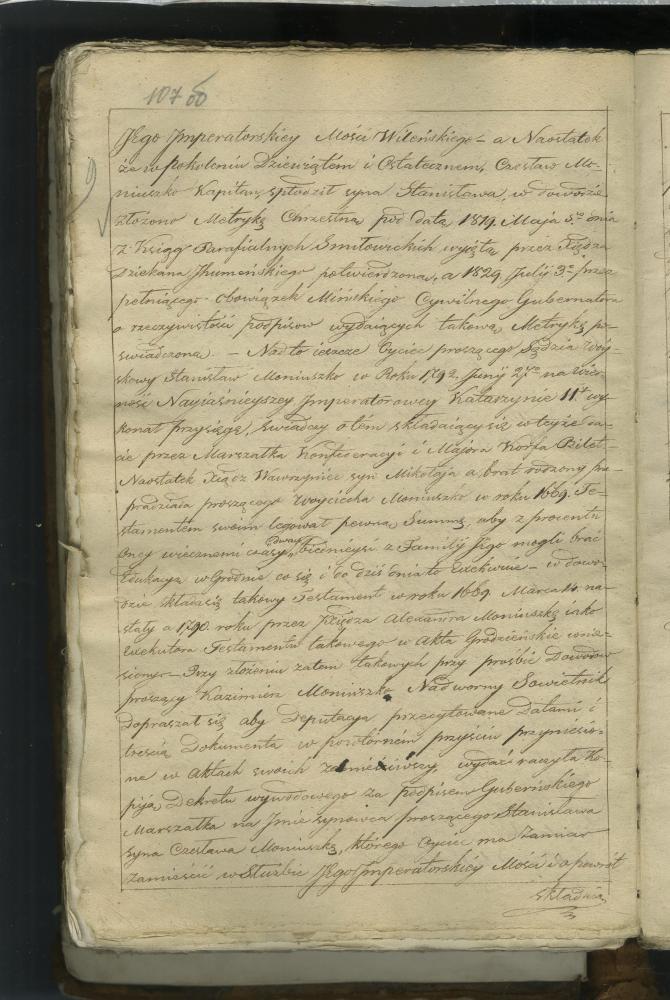 107 об
9
Jego Imperatorskiey Mości Wileńskiego – a Naostatek
że w pokoleniu Dziewiątém i Ostatecznem, Czesław Mo-
niuszko Kapitan, spłodził syna Stanisława, w dowodzie
złożono Metrykę Chrzestną pod datą 1819. Maja 5.º dnia
z Xsiąg Parafialnych Smiłowickich wyjętą przez Xiędza
Dziekana Ihumeńskiego potwierdzoną, a 1829. Julij 3.º przez
pełniącego obowiązek Mińskiego Cywilnego Gubernatora
o rzeczywistości podpisow wydaiących takową Metrykę po-
swiadczoną. – Nadto ieszcze Oyciec proszącego Sędzia Woy-
skowy Stanisław Moniuszko w Roku 1792. Junij na Wier-
ność Nayiaśnieyszey Imperatorowey Katarzynie IIt wy-
konał przysięgę, świadczy o tém składaiący się w teyże da-
cie przez Marszałka Konfederacyi i Majora Korfa Bilet
Naostatek Xiądz Wawrzyniec syn Mikołaja a brat rodzony pra-
pradziada proszącego Woyciecha Moniuszko w roku 1669. Te-
stamentem swoim legował pewną Summę, aby z procentu
oney wiecznemi czasy dway biednieysi z Familij Jego mogli brać
Edukacyą w Grodnie co się i do dziś dnia to Exekwuie – w dowo-
dzie składa się takowy Testament w roku 1669 Marca na-
stały a 1790. roku przez Xiędza Alexandra Moniuszkę iako
Exekutora Testamentu takowego w Akta Grodzieńskie wnie-
siony – Przy złożeniu zatem takowych przy prośbie Dowodow
proszący Kazimierz Moniuszko Nadworny Sowietnik
dopraszał się aby Deputacya przecytowane Datami i
treścią Dokumenta w powtórném przyściu przyniesio-
ne w Aktach swoich zamieściwszy, wydać raczyła Ko-
piją Dekretu wywodowego za podpisem Guberńskiego
Marszałka na Imie synowca proszącego Stanisława
syna Czesława Moniuszkę, którego Oyciec ma Zamiar
zamieścić w Służbie Jego Imperatorskiey Mości i do powrót
składaią